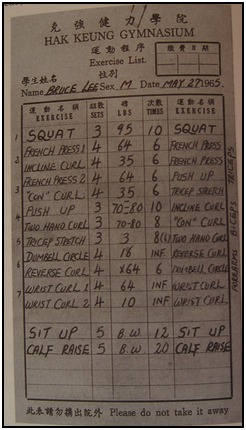 克強健力學院
HAK KEUNG GYMNASIUM
運動程序
Exercise List.
繳費日期
學生姓名 性別
Name BRUCE LEE Sex M. Date MAY 27 1965.
運動名稱 組數 磅 次數 運動名稱
EXERCISE SETS LBS TIMES EXERCISE
1 SQUAT 3 95 10 SQUAT
2 FRENCH PRESS 1 4 64 6 FRENCH PRESS
INCLINE CURL 4 35 6 FRENCH PRESS
3 FRENCH PRESS 2 4 64 6 PUSH UP
"CON" CURL 4 35 6 TRICEP STRETCH
4 PUSH UP 3 70-80 10 INCLINE CURL
TWO HAND CURL 3 70-80 8 "CON" CURL
5 TRICEP STRETCH 3 3 TWO HAND CURL
6 DUMBELL CIRCLE 4 16 INF REVERSE CURL
REVERSE CURL 4 64 6 DUMBELL CIRCLE
7 WRIST CURL 1 4 64 INF WRIST CURL
WRIST CURL 2 4 10 INF WRIST CURL
SIT UP 5 B.W. 12 SIT UP
CALF RAISE 5 B.W 20 CALF RAISE
TRICEPS
BICEPS
FOREARMS
此表請勿攜出院外 Please do not take it away